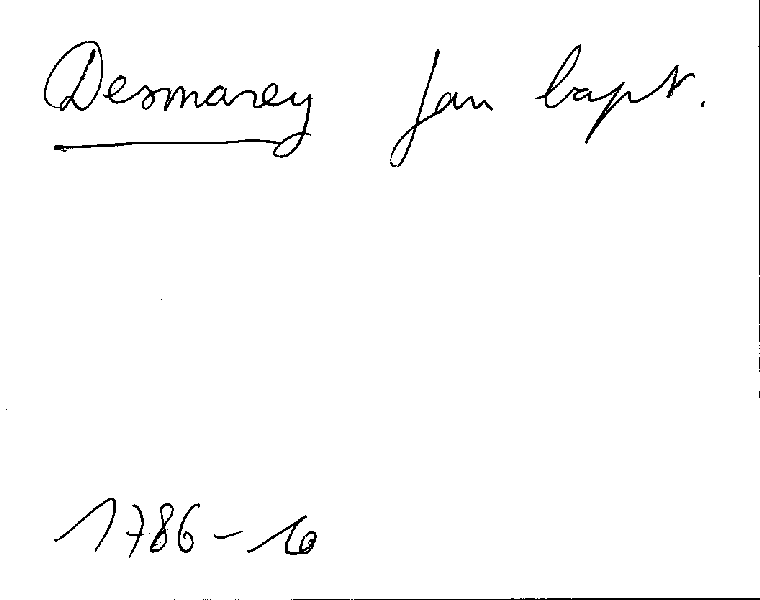 Desmarey Jan bapt.
1786 - 16